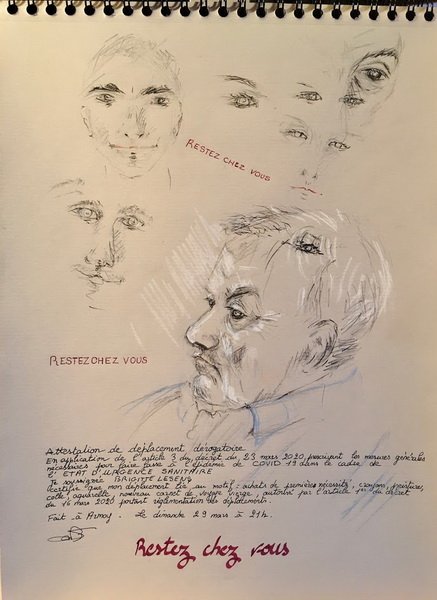 RESTEZ CHEZ VOUS
RESTEZ CHEZ VOUS
Attestation de déplacement dérogatoire
En application de l'article 3 du décret du 23 mars 2020 prescrivant les mesures générales
nécessaires pour faire face à l'épidémie de COVID 19 dans le cadre de
l'ETAT D'URGENCE SANITAIRE
Je soussignée BRIGITTE LESENS
certifie que mon déplacement lié au motif: achats de premières nécessité, crayons, peinture,
colle, aquarelle, nouveau carnet de voyage vierge, autorisé par l'article 1er du décret
du 16 mars 2020 portant réglementation des déplacements.
Fait à Arnay. Le dimanche 29 mars à 21h.
Restez chez vous